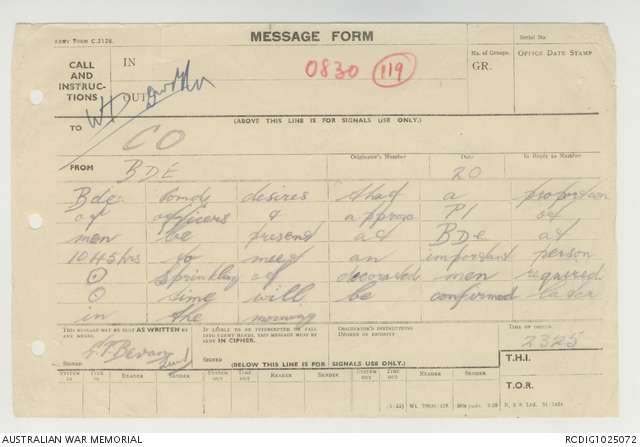 ARMY FORM C.2128.
MESSAGE FORM
Serial No.
CALL AND INSTRUCTIONS
IN
OUT
0830 119
No. of Groups.
GR.
OFFICE DATE STAMP
(ABOVE THIS LINE IS FOR SIGNALS USE ONLY.)
TO CO
FROM BDE
Originator's Number
Date 20
In Reply to Number
Bde Comd desires that a proportion
of officers & approx Pl of
men be present at BDe at
1045 hrs to meet an important person
⊙ Sprinkling of decorated men required
⊙ time will be confirmed later
in the morning
THIS MESSAGE MAY BE SENT AS WRITTEN BY ANY MEANS.
IF LIABLE TO BE INTERCEPTED OR FALL INTO ENEMY HANDS, THIS MESSAGE MUST BE SENT IN CIPHER.
ORIGINATOR'S INSTRUCTIONS DEGREE OF PRIORITY
TIME OF ORIGIN
2325
SIGNED Bevan
SIGNED
(BELOW THIS LINE IS FOR SIGNALS USE ONLY.)
T.H.I.
SYSTEM IN TIME IN READER SENDER SYSTEM OUT TIME OUT READER SENDER SYSTEM OUT TIME OUT READER SENDER
T.O.R.
AUSTRALIAN WAR MEMORIAL
RCDIG1025072